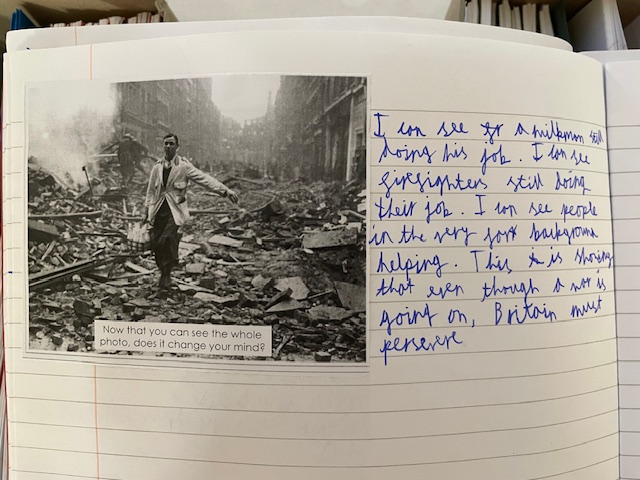 Now that you can see the whole
photo, does it change your mind?
I can see a milkman still
doing his job. I can see
firefighters still doing
their job. I can see people
in the very far background
helping. This is showing
that even though a war is
going on, Britain must
persevere